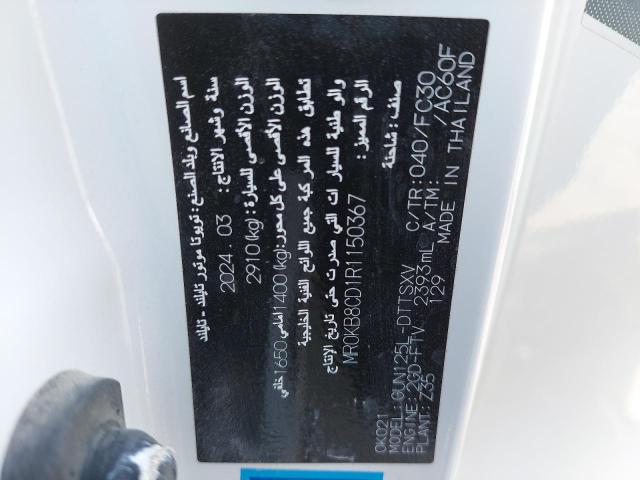 اسم الصانع وبلد الصنع : تويوتا موتور تايلند - تايلند
سنة وشهر الانتاج : 2024 . 03
الوزن الأقصى للسيارة : 2910 (kg)
الوزن الأقصى على كل محور : 1400 (kg) امامي 1650 خلفي
تطابق هذه المركبة جميع اللوائح الفنية الخليجية
والوطنية للسيارات التي صدرت حتى تاريخ الإنتاج
الرقم المميز : MR0KB8CD1R1150367
صنف : شاحنة
0K021 C/TR: 040/FC30
MODEL: GUN125L-DTTSXV A/TM: /AC60F
ENGINE: 2GD-FTV 2393mL
PLANT: Z35 129 MADE IN THAILAND